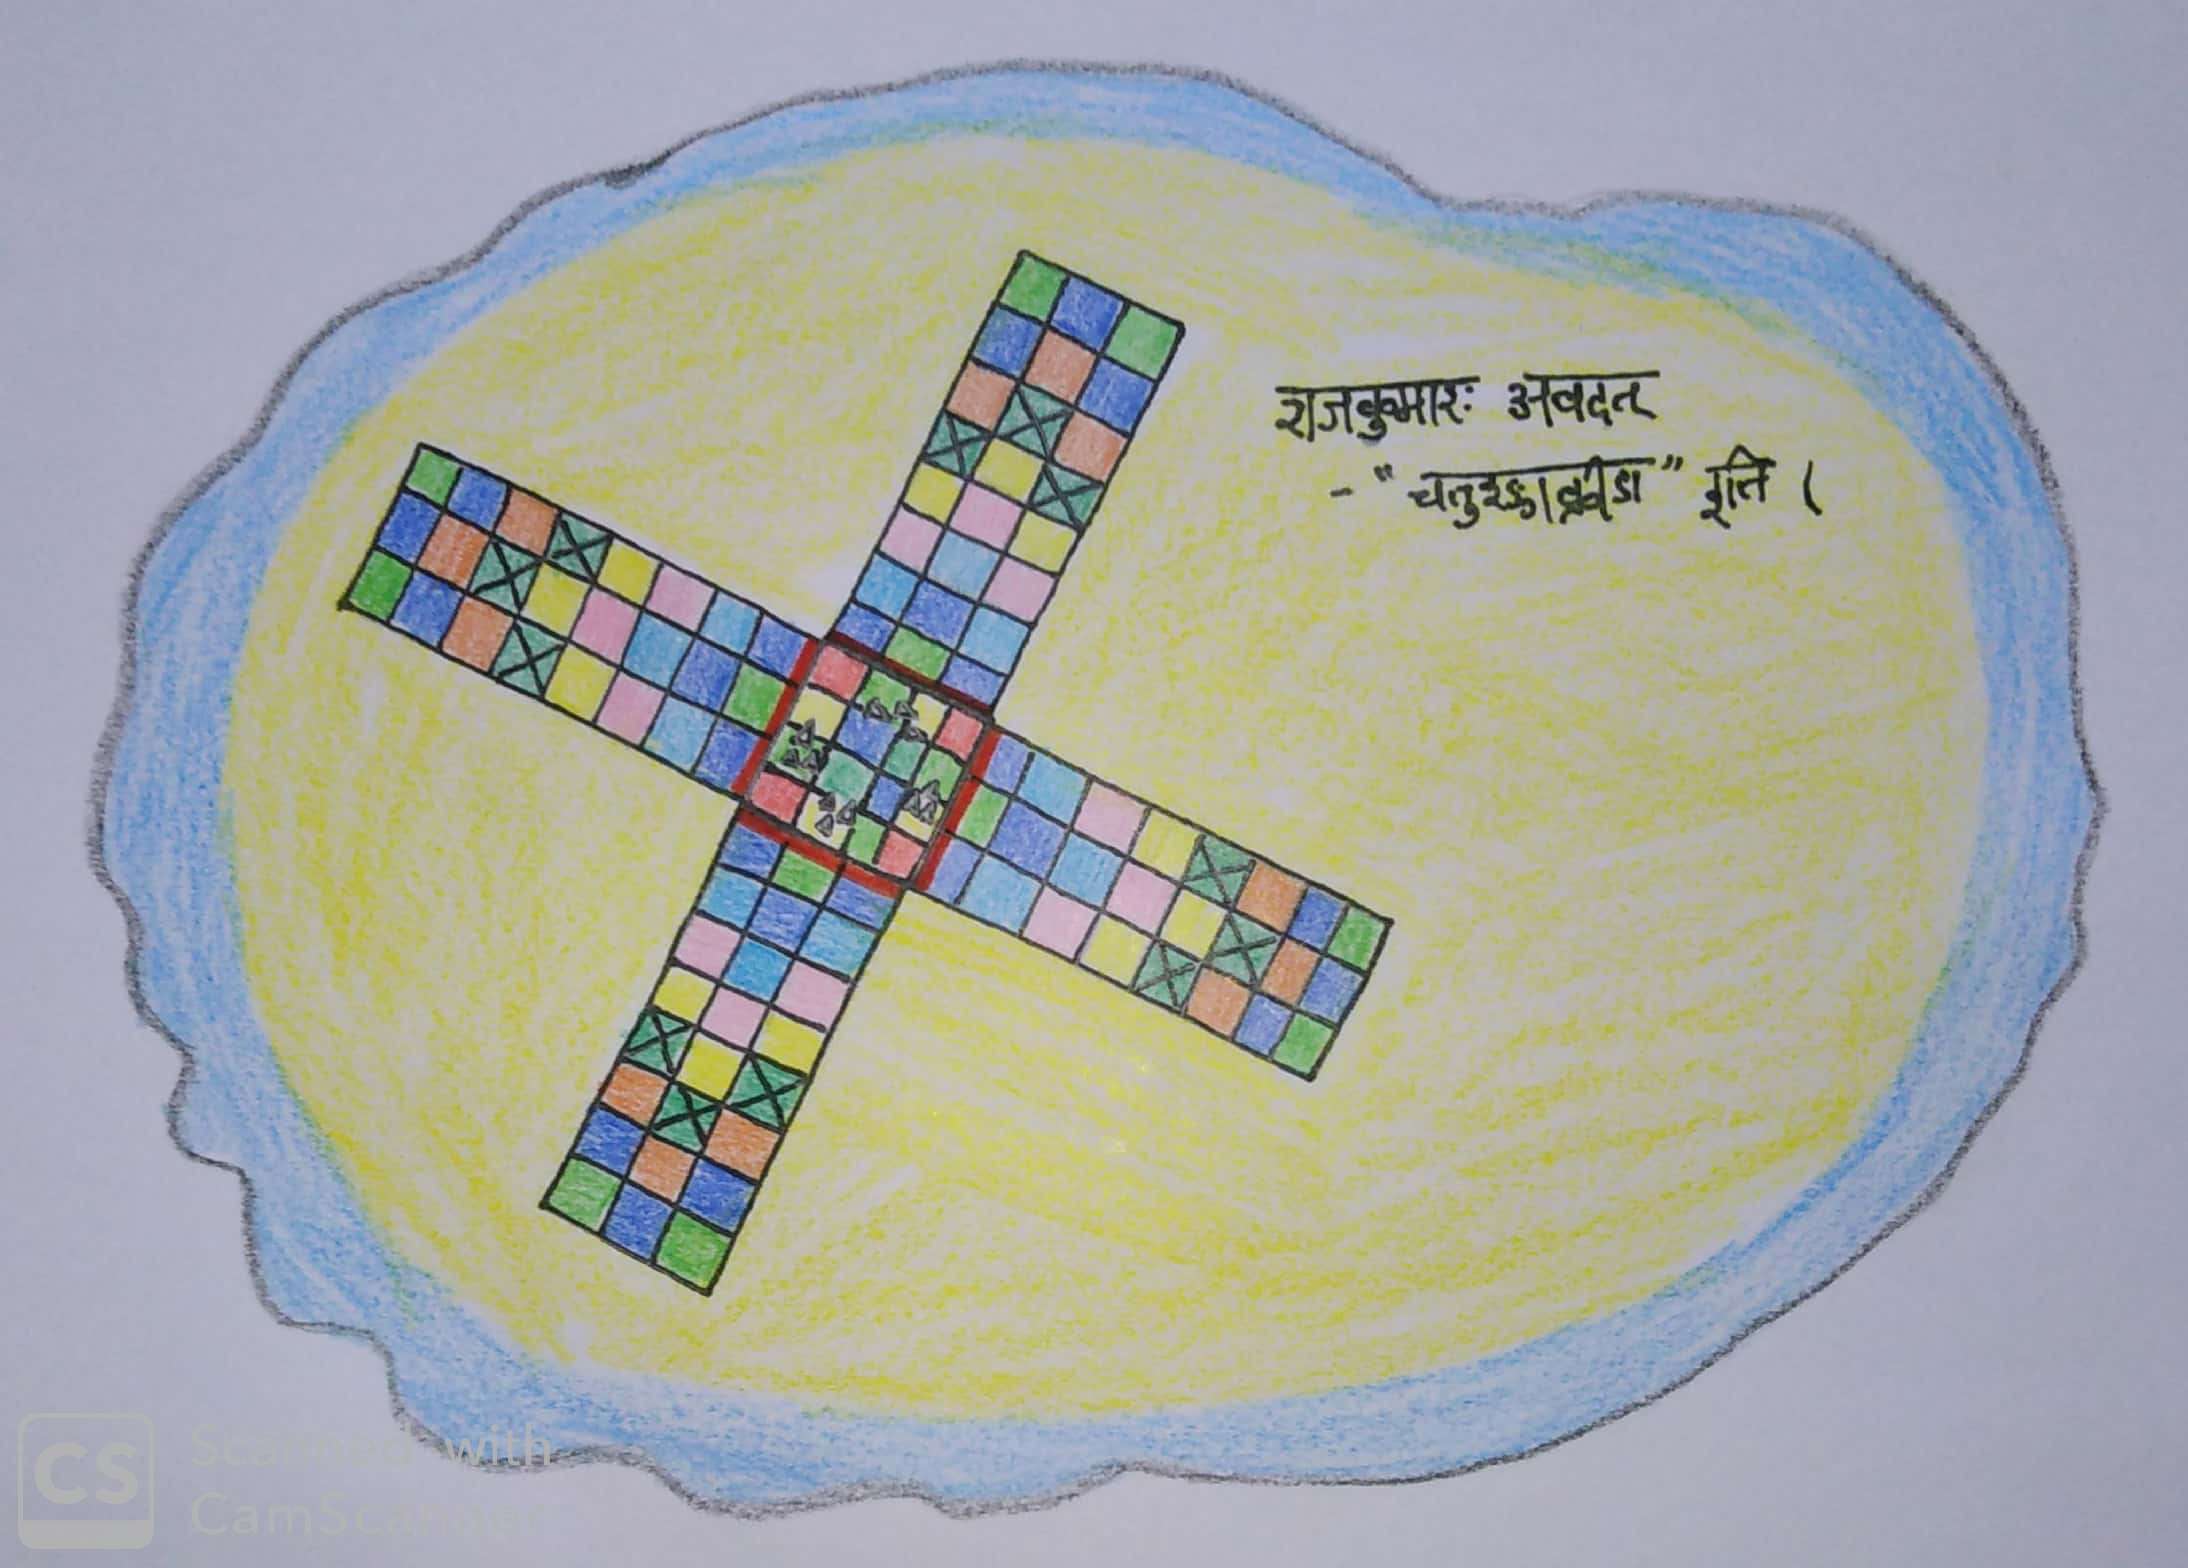 राजकुमारः अवदत्
- "चतुरङ्गक्रीडा" इति ।
CS Scanned with
CamScanner